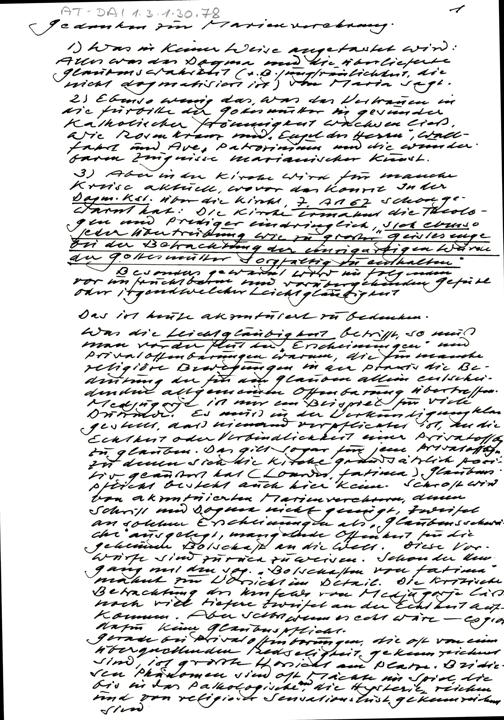 AT-DAI 1.3.1.30.78
1
Gedanken zur Marienverehrung.
1) Was in keiner Weise angetastet wird:
Alles was das Dogma und die überlieferte
Glaubenswahrheit (z.B. Jungfräulichkeit, die
nicht dogmatisiert ist) von Maria sagt.
2) Ebenso wenig das, was das Vertrauen in
die Fürbitte der Gottesmutter in gesunder
katholischer Frömmigkeit wachsen ließ,
wie Rosenkranz und "Engel des Herrn", Wall-
fahrt und Ave, Patrozinien und die wunder-
baren Zeugnisse marianischer Kunst.
3) Aber in der Kirche wird für manche
Kreise aktuell, wovor das Konzil in der
Dogm. Kst. über die Kirche, 7, A 167 schon ge-
warnt hat: Die Kirche ermahnt die Theolo-
gen und Prediger eindringlich, "sich ebenso
jeder Übertreibung wie zu großer Geistesenge
bei der Betrachtung der einzigartigen Würde
der Gottesmutter sorgfältig zu enthalten."
Besonders gewarnt wird im folgenden
vor unfruchtbarem und vorübergehendem Gefühl
oder irgendwelcher Leichtgläubigkeit
Das ist heute akzentuiert zu bedenken.
Was die Leichtgläubigkeit betrifft, so muß
man vor der Flut der "Erscheinungen" und
Privatoffenbarungen warnen, die für manche
religiöse Bewegungen in der Praxis die Be-
deutung der für den Glauben allein entschei-
denden allgemeinen Offenbarung übertreffen.
Medjugorje ist nur ein Beispiel für viele
Es muß in der Verkündigung klar
gestellt, daß niemand verpflichtet ist, an die
Echtheit oder Verbindlichkeit einer Privatoff.
zu glauben. Das gilt sogar für jene Privatoff.
zu denen sich die Kirche grundsätzlich posi-
tiv geäußert hat (Lourdes, Fatima). Glaubens-
pflicht besteht auch hier keine. Schroff wird
von akzentuierten Marienverehrern, denen
Schrift und Dogma nicht genügt, Zweifel
an solchen Erscheinungen als "Glaubensschwä-
che" ausgelegt, mangelnde Offenheit für die
geheimen Botschaft an die Welt. Diese Vor-
würfe sind zurück zu weisen. Schon der Um-
gang mit den sog. Botschaften von Fatima
mahnt zur Vorsicht im Detail. Die kritische
Betrachtung des Umfelds von Medjugorje läßt
noch viel tiefere Zweifel an der Echtheit auf-
kommen. Aber selbst wenn es echt wäre – es gibt
dafür keine Glaubenspflicht.
Gerade bei Privatoffenbarungen, die oft von einer
übersprudelnden Redseligkeit gekennzeichnet
sind, ist größte Vorsicht am Platze. Bei die-
sen Phänomen sind oft Mächte im Spiel, die
bis in das Pathologische, die Hysterie reichen
und von religiöser Sensationslust gekennzeichnet
sind